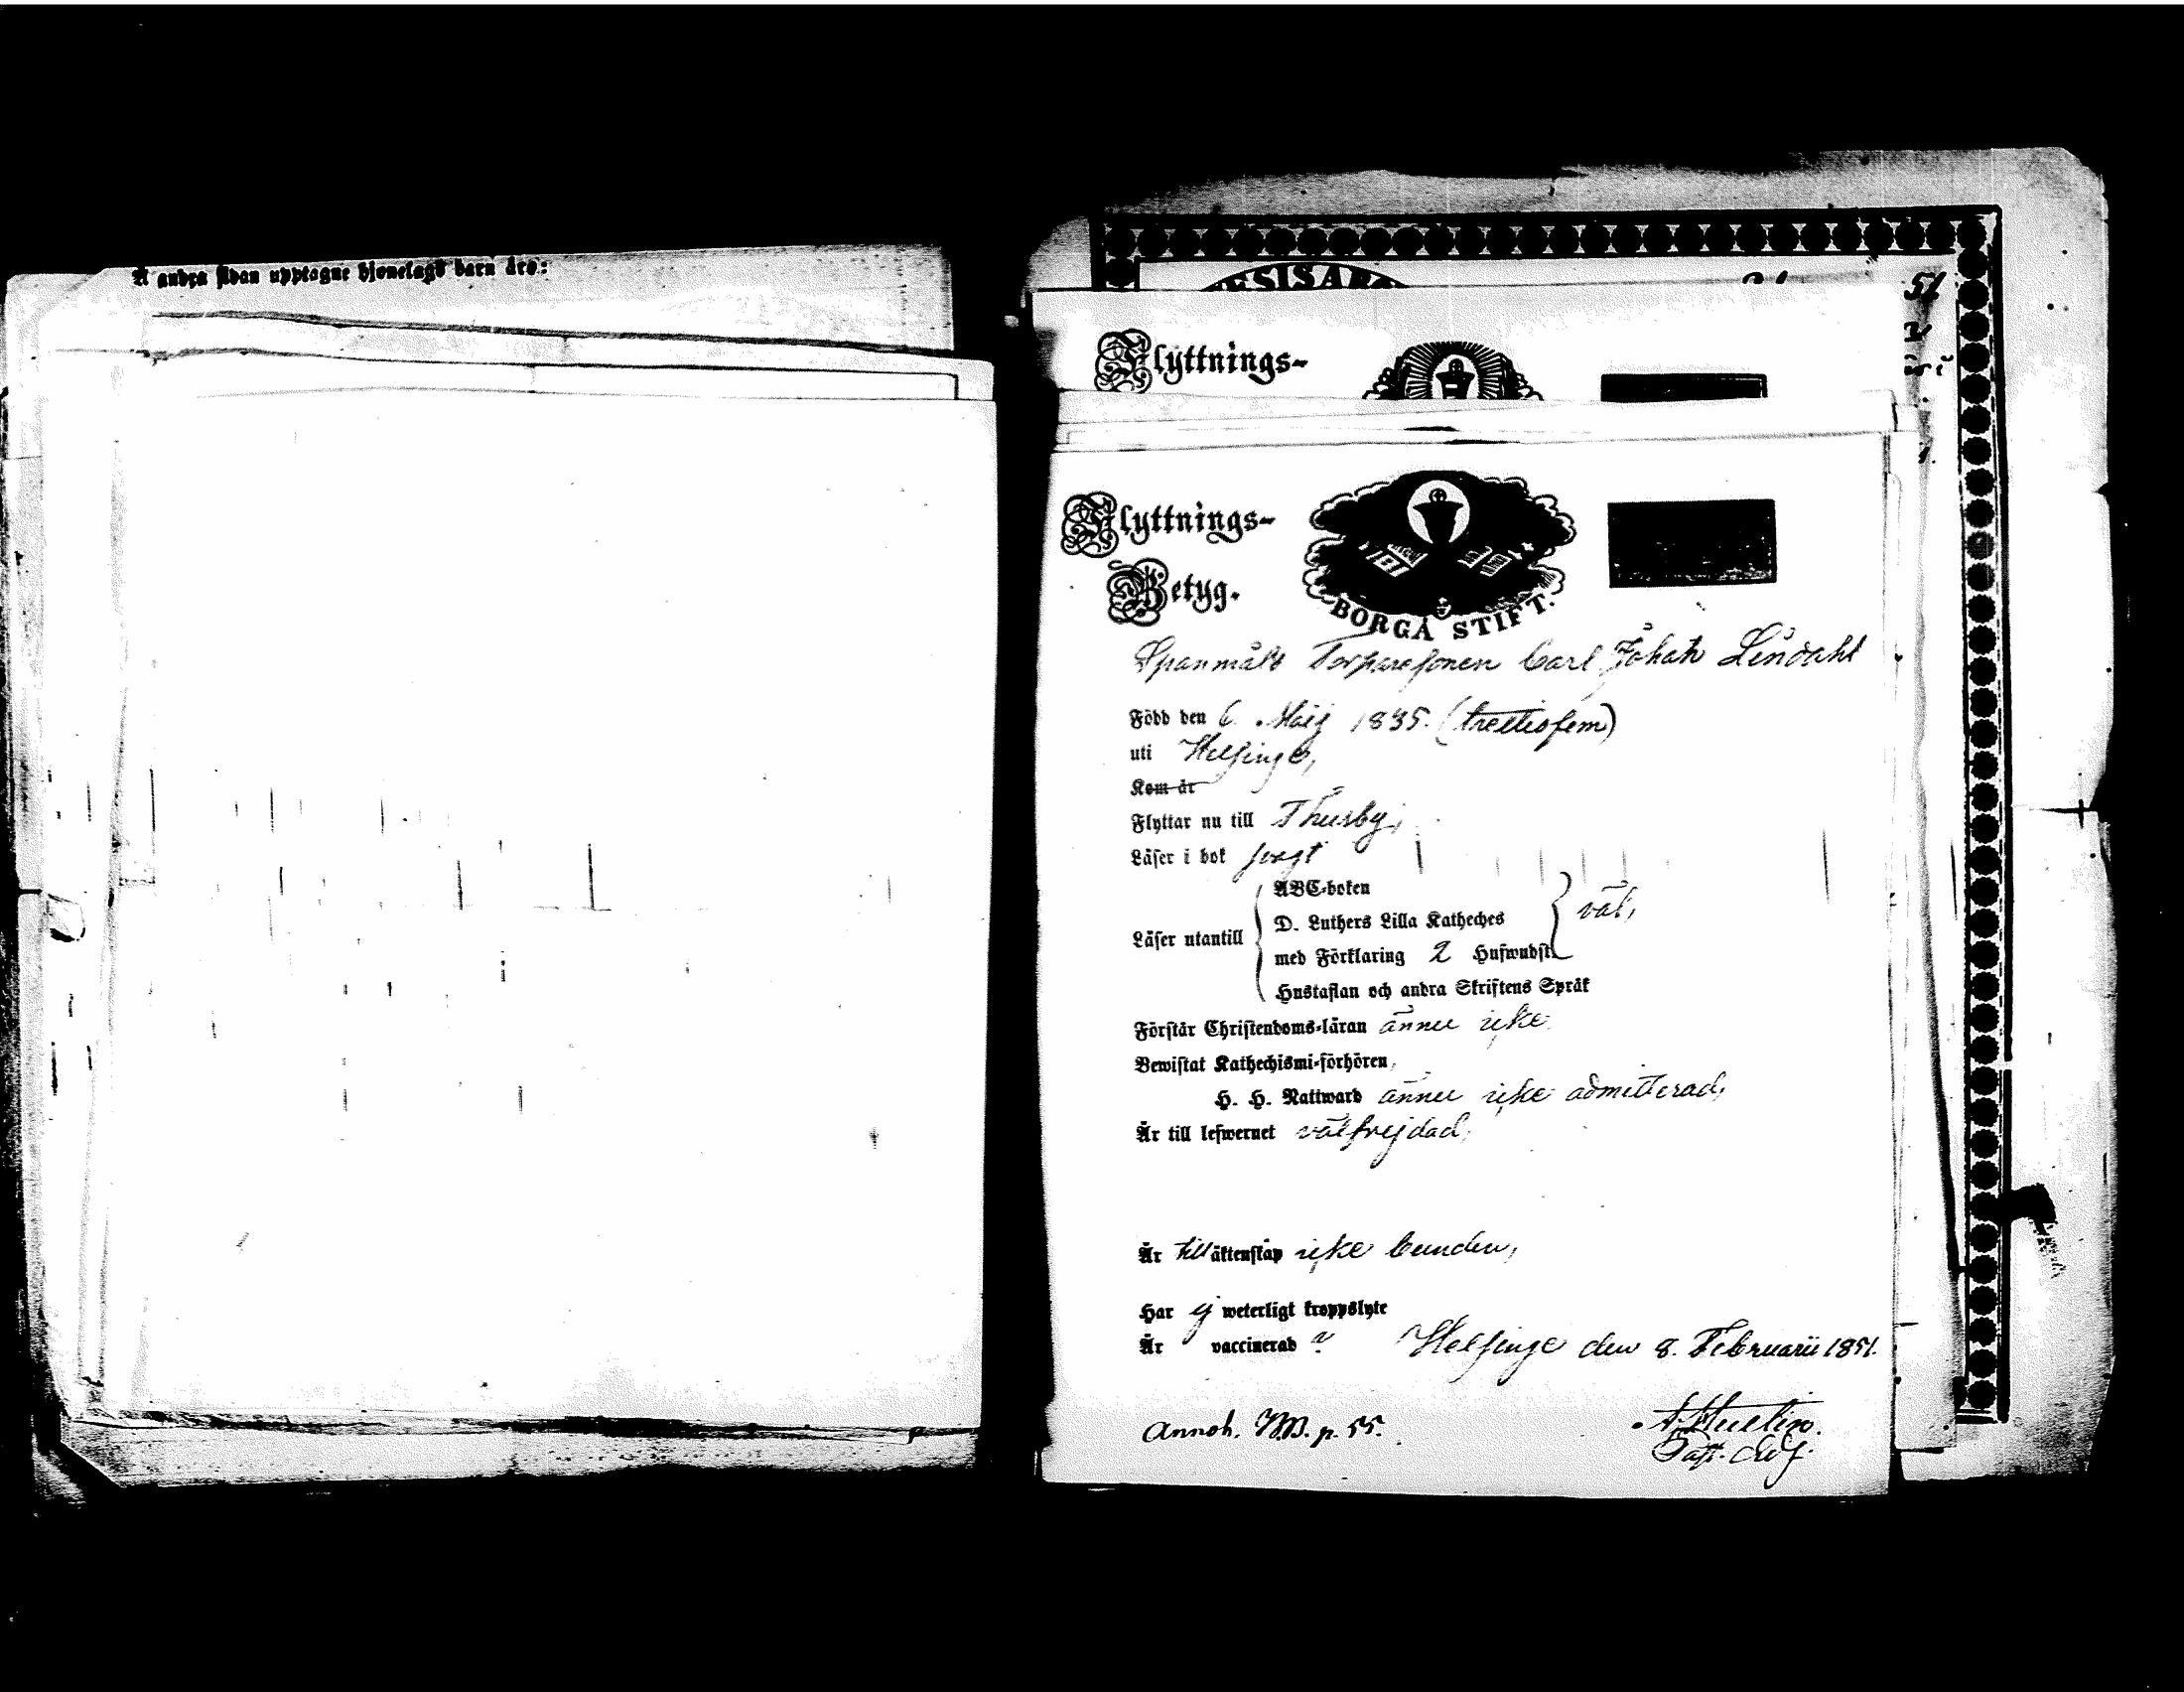 Å andra sidan upptagne hjonelags barn äro:
ESISAR
51
Flyttnings-
Flyttnings-
Betyg.
BORGÅ STIFT.
Torparesonen Carl Johan Lindahl
Född den 6. Maij 1835. (trettiofem)
uti Helsinge,
Kom år
Flyttar nu till Thusby,
Läser i bok svagt
Läser utantill
ABC-boken
D. Luthers Lilla Katheches
med Förklaring 2 Hufwudst.
väl,
Hustaflan och andra Skriftens Språk
Förstår Christendoms-läran ännu icke
Bewistat Kathechismi-förhören,
H. H. Nattward ännu icke admitterad,
Är till lefwernet välfrejdad,
Är till äktenskap icke bunden,
Har ej weterligt kroppslyte
Är vaccinerad ?
Helsinge den 8. Februarii 1851.
Annot. p. 55.
Past. Adj.